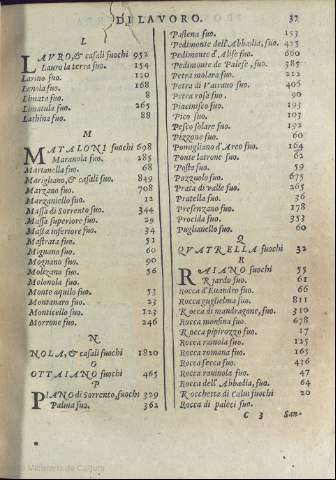 DI LAVORO. 32
L
LAVRO, & casali fuochi 952
Lauro la terra fuo. 154
Larino fuo. 120
Lenola fuo. 168
Limata fuo. 8
Limatula fuo. 265
Lathina fuo. 88
M
MATALONI fuochi 698
Maranola fuo. 285
Martanella fuo. 68
Marigliano, & casali fuo. 849
Marzano fuo. 708
Marzaniello fuo. 12
Massa di Sorrento fuo. 344
Massa superiore fuo. 29
Massa inferiore fuo. 34
Mastrata fuo. 51
Mignano fuo. 60
Mognano fuo. 90
Molizana fuo. 56
Molonola fuo.
Monte aquilo fuo. 53
Montanaro fuo. 23
Monticello fuo. 123
Morrone fuo. 246
N
NOLA, & casali fuochi 1820
O
OTTAIANO fuochi 465
P
PIANO di Sorrento, fuochi 329
Palma fuo. 362
Pastena fuo. 153
Pedimonte dell'Abbadia, fuo. 425
Pedimonte d'Alife fuo. 660
Pedimonte de Palese fuo. 385
Petra molara fuo. 212
Petra di Vairano fuo. 406
Petra rosa fuo. 90
Piacinisco fuo. 193
Pico fuo. 103
Pesco solare fuo. 192
Pizzone fuo. 60
Pomigliano d'Arco fuo. 164
Ponte latrone fuo. 62
Posta fuo. 59
Pozzuolo fuo. 675
Prata di valle fuo. 265
Pratella fuo. 36
Presenzano fuo. 178
Procida fuo. 353
Puglianello fuo. 60
Q
QVATRELLA fuochi 32
R
RAIANO fuochi 55
Riardo fuo. 61
Rocca d'Euandro fuo. 66
Rocca guglielma fuo. 811
Rocca di mandragone, fuo. 310
Rocca monfina fuo. 678
Rocca pipirozzo fuo. 17
Rocca rainola fuo. 125
Rocca romana fuo. 163
Rocca secca fuo. 436
Rocca rauinola fuo. 47
Rocca dell'Abbadia, fuo. 64
Rocchetta di Caluo fuochi 20
Rocca di paleci fuo.
C 3 San-
Ministerio de Cultura